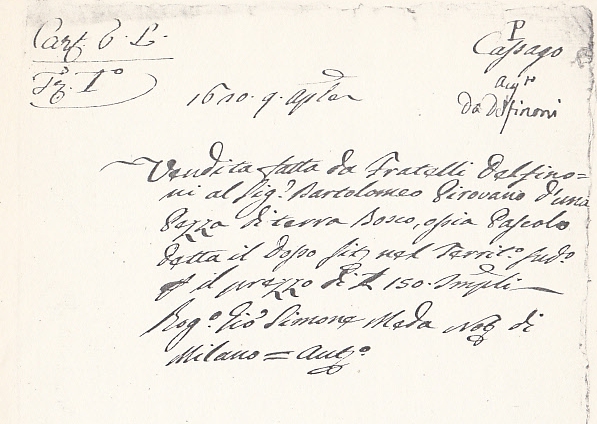 Cart. 6. L.
Fz. 1º
P
Cassago
Acqto
da Delfinoni
1610. 9. Aprile
Vendita fatta da Fratelli Delfino=
ni al Sigr. Bartolomeo Pirovano d'una
Pezza di terra Bosco, ossia Pascolo
detta il Dosso sita nel Territº. sudº.
p il prezzo di L 150. Impli
Rogº. Gio Simone Meda Notº di
Milano = Autº.